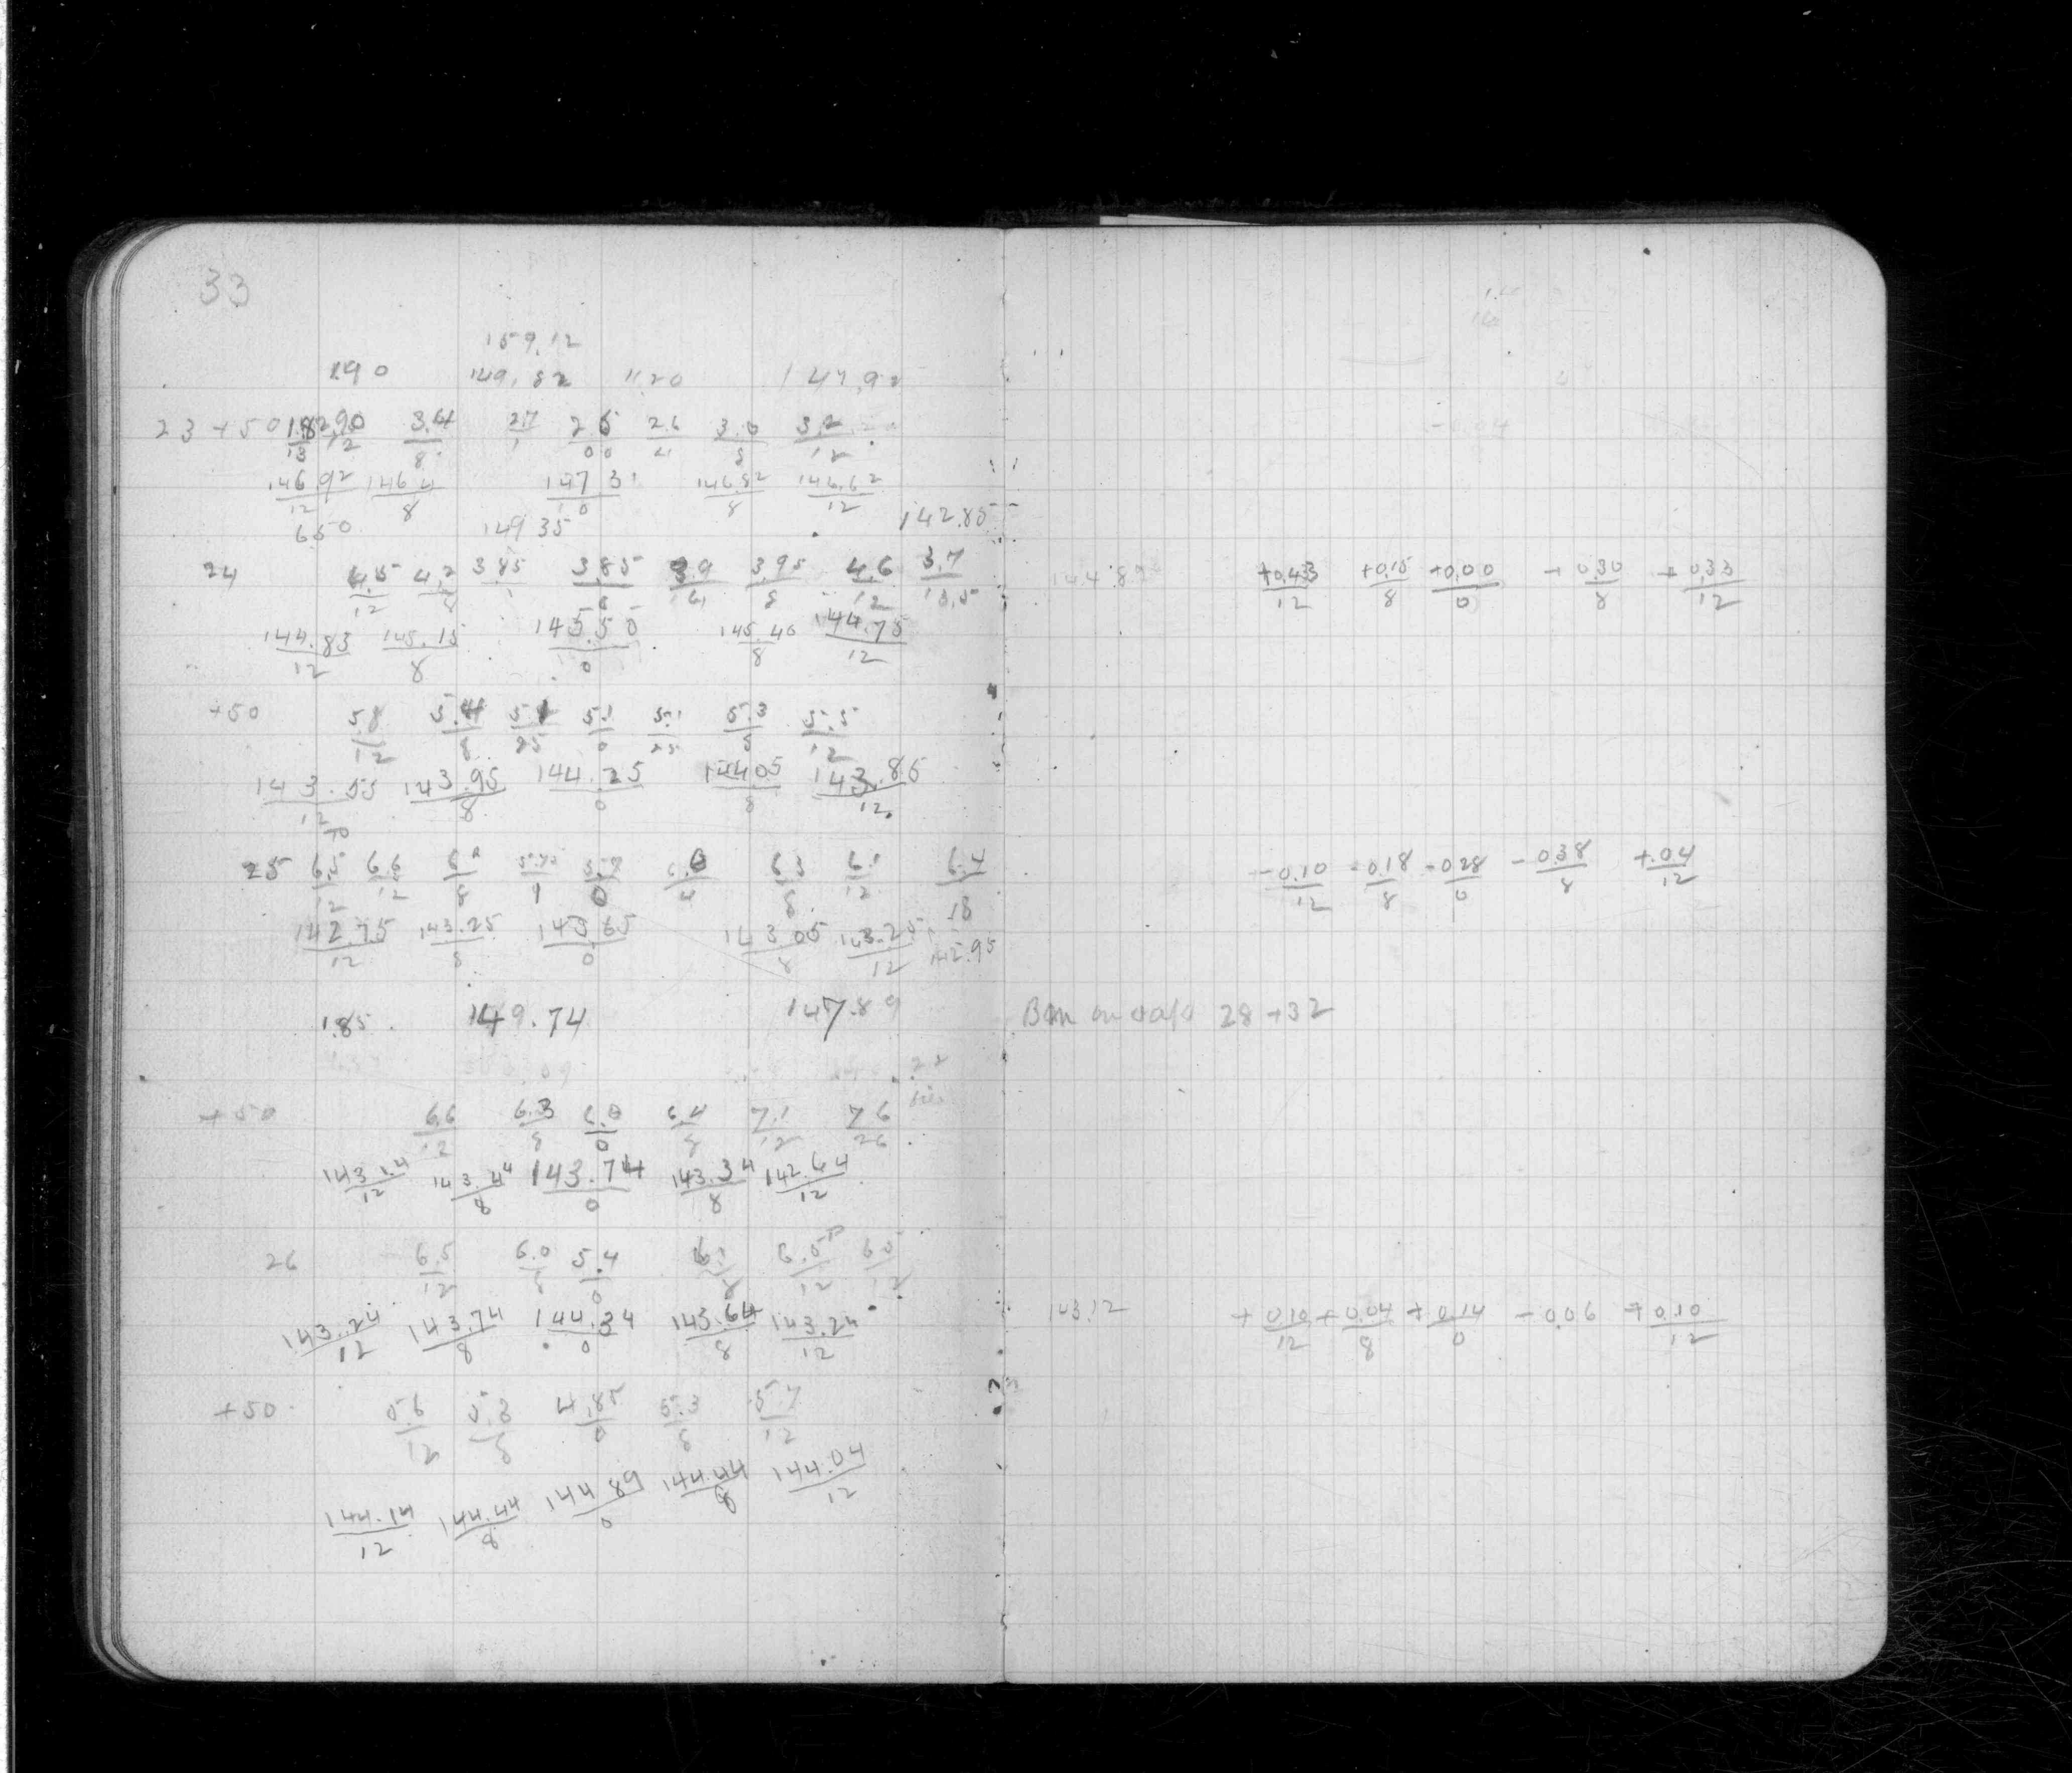 33
159.12
190 149.82 11.20 147.92
23 +50 3.4 2.7 2.6 2.6 3.0 3.2
12 8 1 00 4 8 12
146.92 146.4 147.31 146.82 146.62
12 8 0 8 12
650 149.35 142.85
24 4.5 4.2 3.85 3.85 3.9 3.95 4.6 3.7
12 8 1 8 12 13.5
144.83 145.15 145.50 145.40 144.75
12 8 0 8 12
144.89 +0.433 +0.15 +0.00 - 0.30 + 0.33
12 8 0 8 12
+50 5.8 5.4 5.1 5.1 5.1 5.3 5.5
12 8 25 0 25 8 12
143.55 143.95 144.25 144.05 143.85
12 8 0 8 12
25 6.5 6.6 5.75 6.0 6.3 6.1 6.4
12 12 8 1 0 4 8 12 18
142.75 143.25 143.65 143.05 143.25 142.95
12 8 0 8 12
-0.10 -0.18 -0.28 -0.38 +.04
12 8 0 8 12
1.85 149.74 147.89
Bm on 28 +32
+50 6.6 6.3 6.0 6.4 7.1 7.6
12 8 0 8 12 26
143.14 143.44 143.74 143.34 142.64
12 8 0 8 12
26 6.5 6.0 5.4 6.1 6.5 6.5
12 8 0 8 12 12
143.24 143.74 144.34 143.64 143.24
12 8 0 8 12
143.12 +0.10 +0.04 +0.14 -0.06 +0.10
12 8 0 12
+50 5.6 5.3 4.85 5.3 5.7
12 8 0 8 12
144.14 144.44 144.89 144.44 144.04
12 8 0 8 12